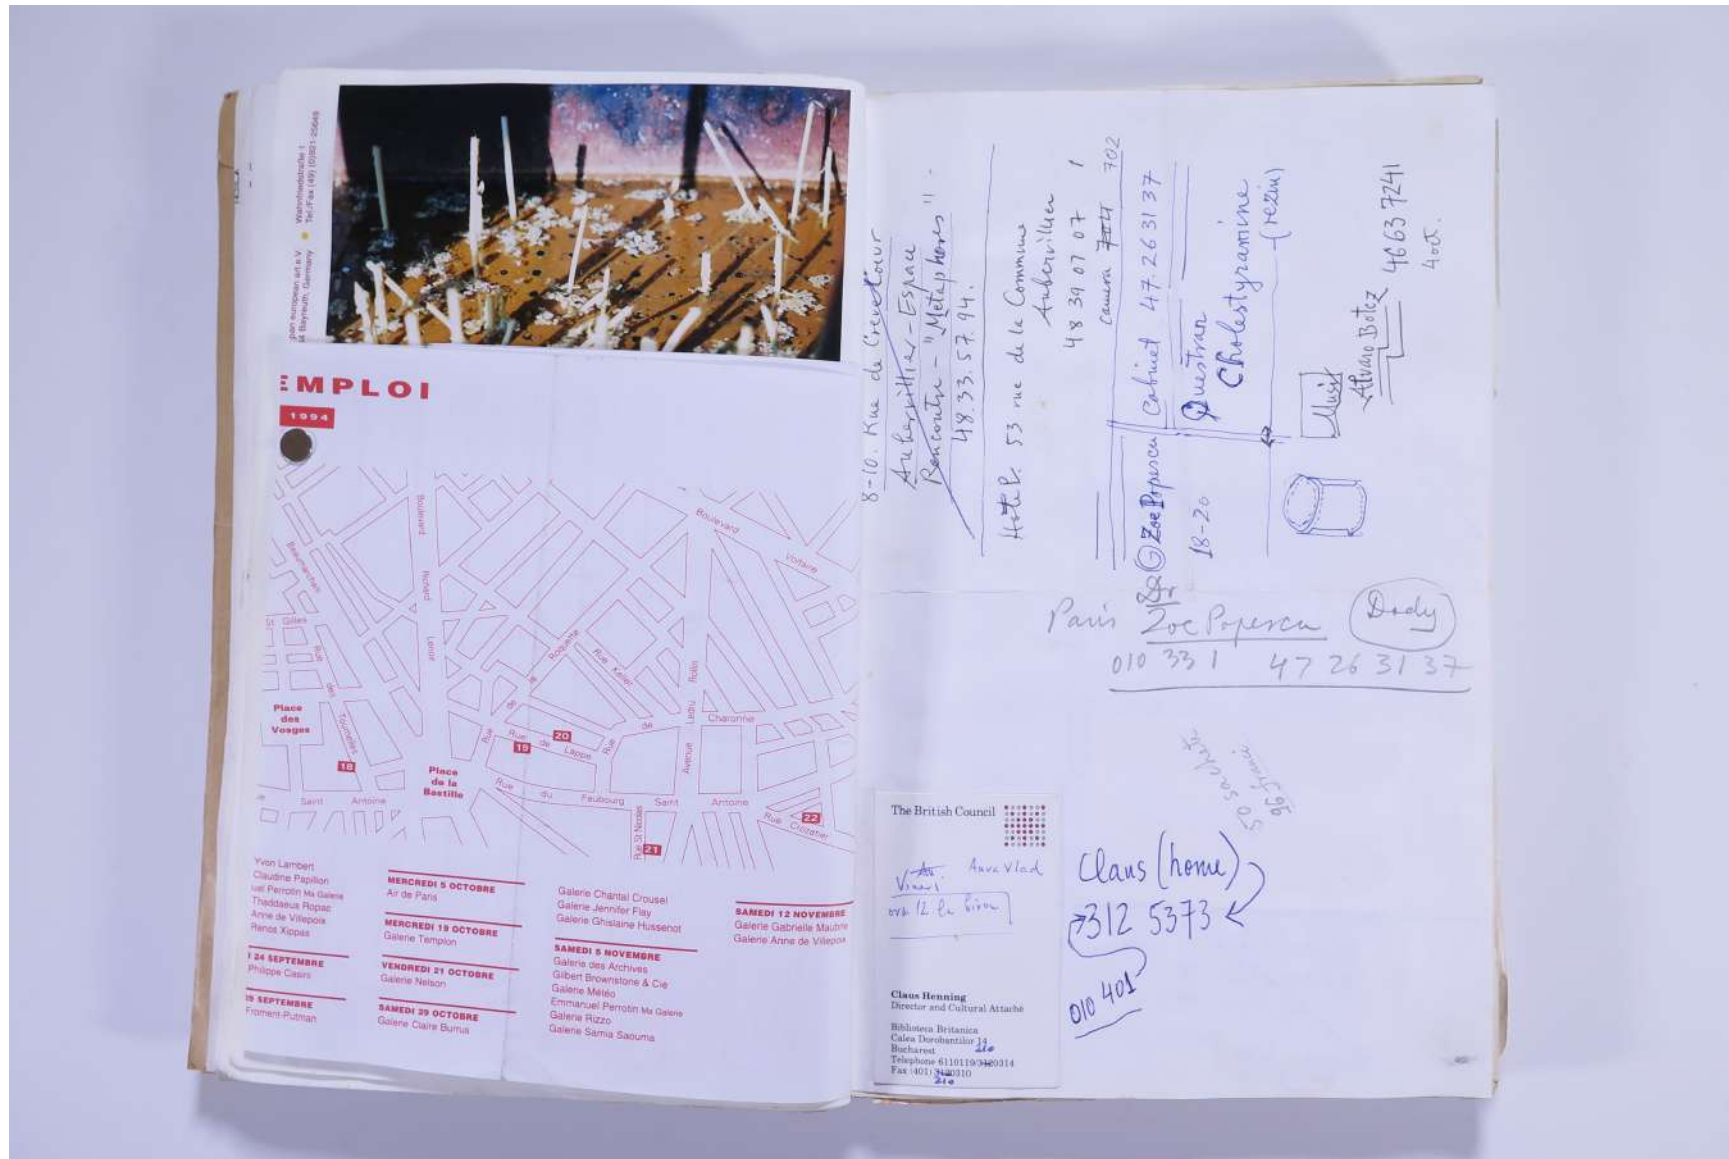 pan european art e.V.
Bayreuth, Germany
Wahnfriedstraße 1
Tel./Fax (49) (0)921-25649
EMPLOI
1994
Boulevard
Richard
Lenoir
Beaumarchais
St Gilles
Rue
des
Tournelles
Place
des
Vosges
18
Saint Antoine
Place
de la
Bastille
Rue
de
la
Roquette
Rue Keller
Boulevard
Voltaire
Avenue
Ledru
Rollin
Rue
de
Charonne
19
20
Rue de Lappe
Rue du Faubourg Saint Antoine
Rue St Nicolas
21
22
Rue Crozatier
Yvon Lambert
Claudine Papillon
uel Perrotin Ma Galerie
Thaddaeus Ropac
Anne de Villepoix
Renos Xippas
I 24 SEPTEMBRE
Philippe Casini
SEPTEMBRE
Froment-Putman
MERCREDI 5 OCTOBRE
Air de Paris
MERCREDI 19 OCTOBRE
Galerie Templon
VENDREDI 21 OCTOBRE
Galerie Nelson
SAMEDI 29 OCTOBRE
Galerie Claire Burrus
Galerie Chantal Crousel
Galerie Jennifer Flay
Galerie Ghislaine Hussenot
SAMEDI 5 NOVEMBRE
Galerie des Archives
Gilbert Brownstone & Cie
Galerie Météo
Emmanuel Perrotin Ma Galerie
Galerie Rizzo
Galerie Samia Saouma
SAMEDI 12 NOVEMBRE
Galerie Gabrielle Maubrie
Galerie Anne de Villepoix
8-10. Rue de Crevecoeur
Aubervillier - Espace
Rencontre - "Métaphores".
48.33.57.94.
Hotel P. 53 rue de la Commune
Aubervillier
48 39 07 07 1
camera 702
Zoe Popescu Cabinet 47.26 31 37
18-20
Questran
Cholestyramine
(rezin)
Music
Alvaro Botez 4663 7241
4 oct.
Paris Dr Zoe Popescu Dody
010 33 1 47 26 31 37
50 sachets
96 franci
Claus (home)
312 5373
010 401
The British Council
Vineri Anca Vlad
ora 12 la birou
Claus Henning
Director and Cultural Attaché
Biblioteca Britanica
Calea Dorobantilor 14
Bucharest
210
Telephone 6110119/3120314
Fax (401) 3120310
210